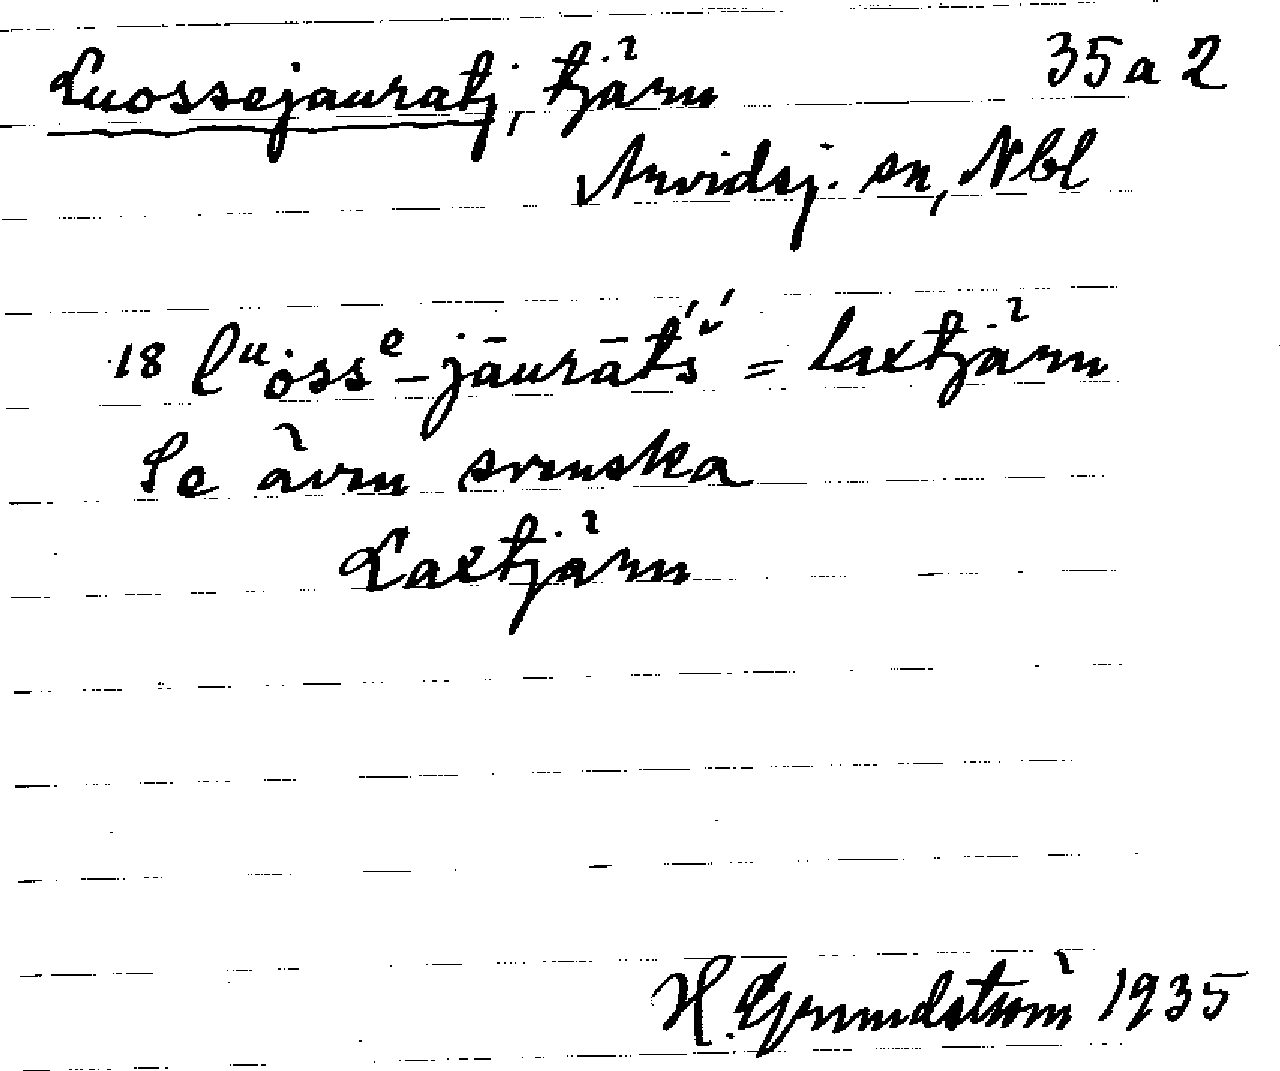 Luossejauratj, tjärn 35a2
Arvidsj. sn, Nbl
18 lᵘȯssᵉ-jāurāt́ś = laxtjärn
Se även svenska
Laxtjärn
H. Grundström 1935